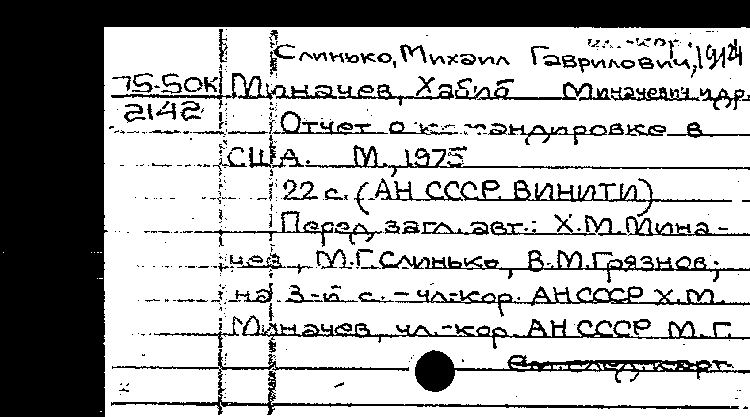 чл.-кор.
Слинько, Михаил Гаврилович, 1914
75-50К Миначев, Хабиб Миначевич и др.
2142
Отчет о командировке в
США. М., 1975
22 с. (АН СССР. ВИНИТИ)
Перед загл. авт.: Х.М. Мина-
чев, М.Г. Слинько, В.М. Грязнов;
на 3-й с. - чл-кор. АН СССР Х.М.
Миначев, чл.-кор. АН СССР М.Г.
См. след. карт.